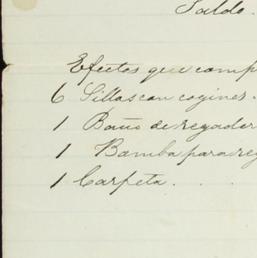 Saldo.
Efectos que comp
6 Sillas con cogines.
1 Baño de regader
1 Bomba para re
1 Carpeta . . .